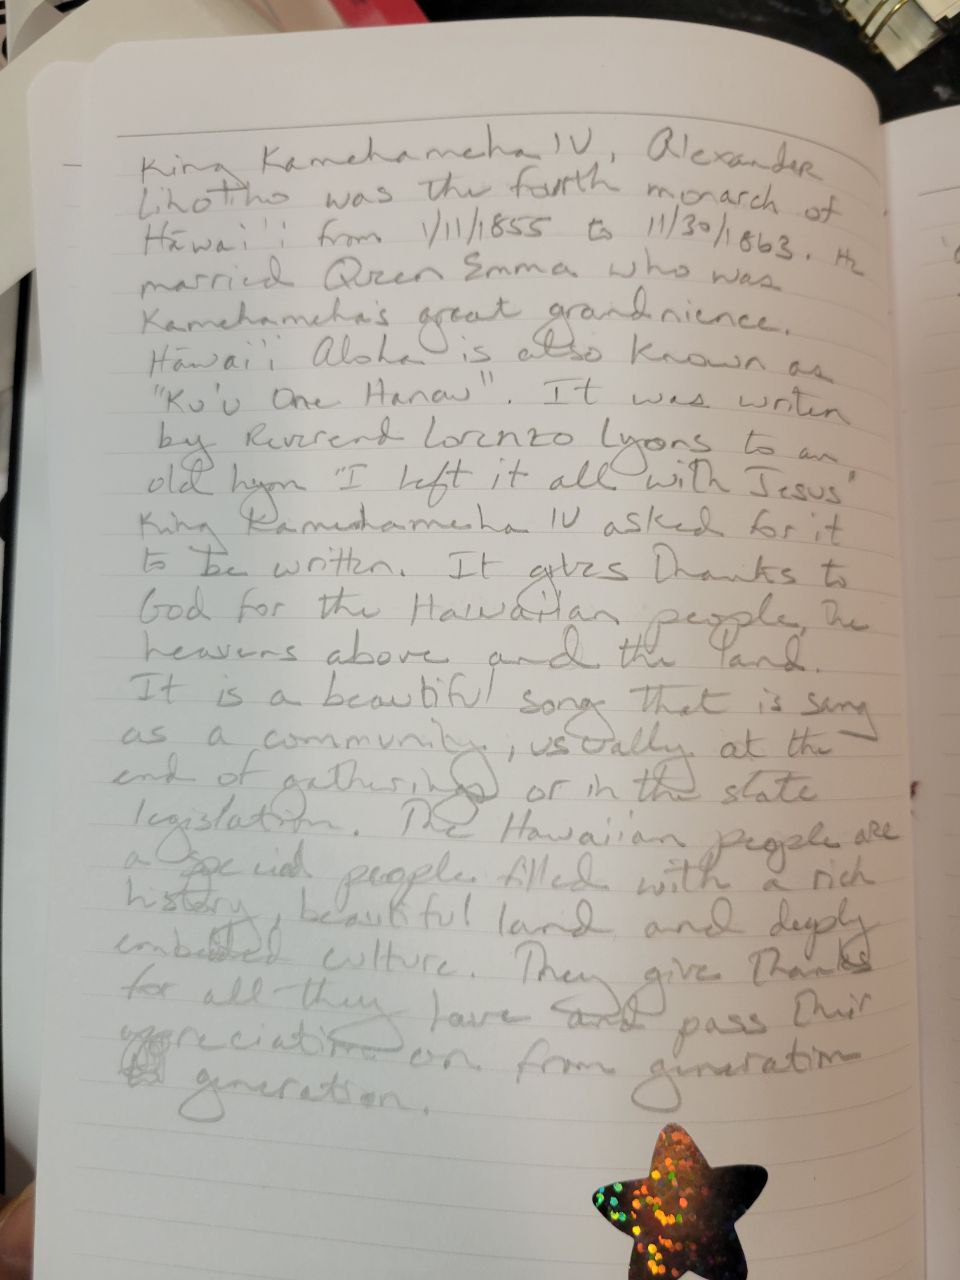 King Kamehameha IV, Alexander
Lihotiho was the fourth monarch of
Hāwai'i from 1/11/1855 to 11/30/1863. He
married Queen Emma who was
Kamehameha's great grandnience.
Hāwai'i Aloha is also known as
"Ku'u One Hanau". It was writen
by Reverend Lorenzo Lyons to an
old hymn "I left it all with Jesus"
King Kamehameha IV asked for it
to be written. It gives thanks to
God for the Hawaiian people, the
heavens above and the land.
It is a beautiful song that is sung
as a community, usually at the
end of gatherings or in the state
legislation. The Hawaiian people are
a special people filled with a rich
history, beautiful land and deeply
embedded culture. They give thanks
for all they have and pass their
appreciation on from generation
generation.